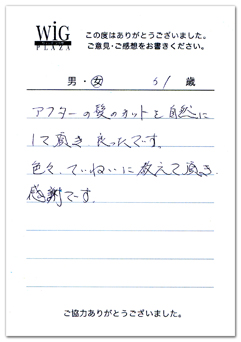 WIG
PLAZA
この度はありがとうございました。
ご意見・ご感想をお書きください。
男・女 51歳
アフターの髪のカットを自然に
して頂き良ったです。
色々、ていねいに教えて頂き、
感謝です。
ご協力ありがとうございました。